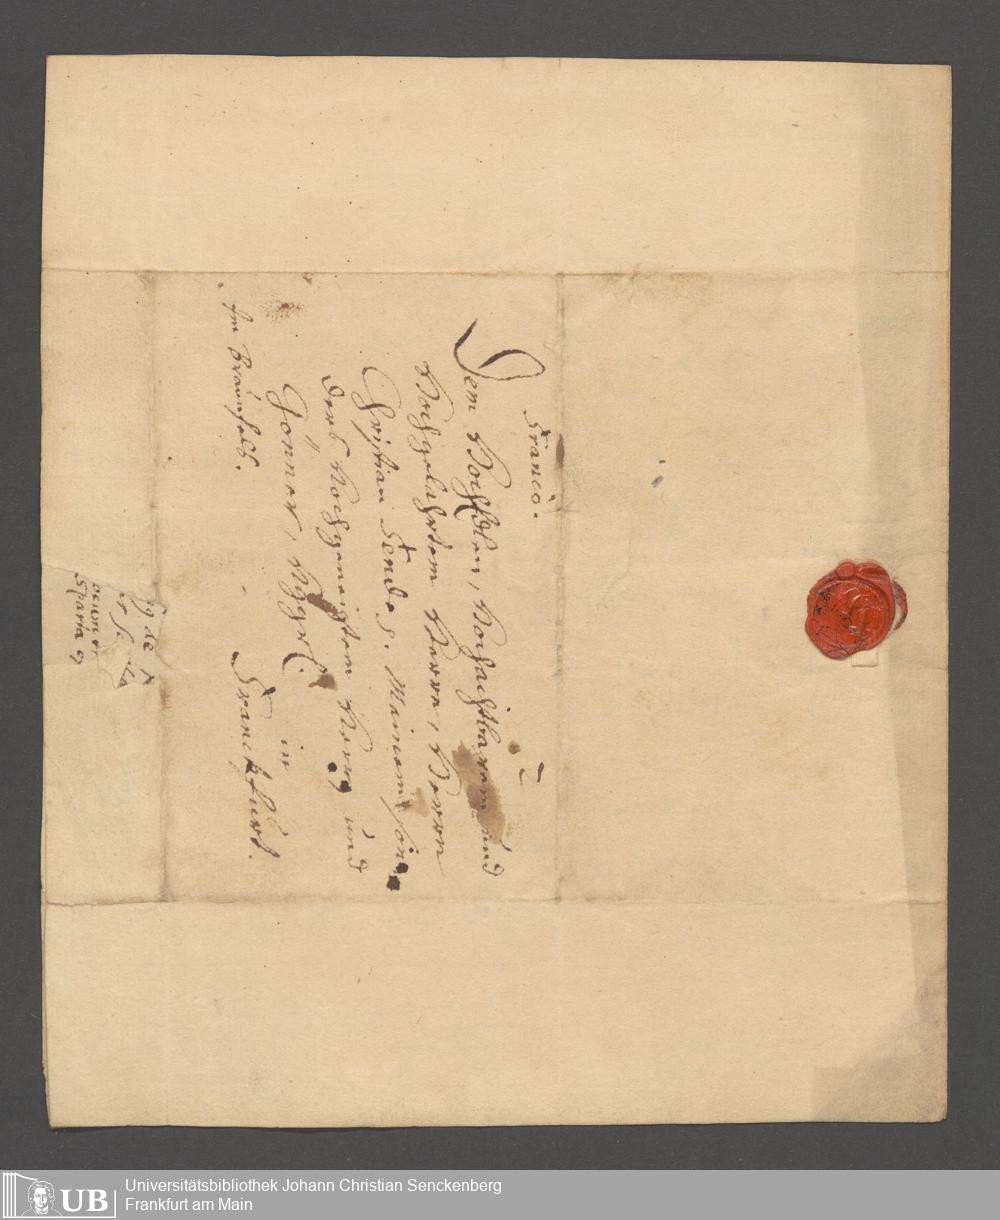 Franco.
Dem HochEdlen, Hochachtbarem und
Hochgelahrtem Herrn, Herrn
Christian Fende, s. Meinem
Hochgeneigten Herrn und
Gönner,
in
Franckfurt.
Im Braunfels.
g de
Sparta
Universitätsbibliothek Johann Christian Senckenberg
Frankfurt am Main
UB